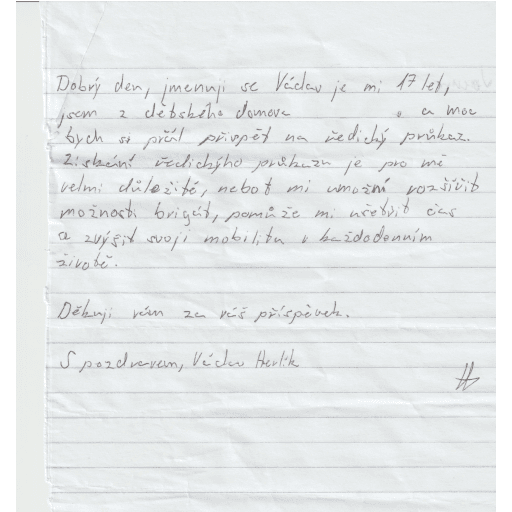 Dobrý den, jmenuji se Václav je mi 17 let,
jsem z dětského domova a moc
bych si přál přispět na řidický průkaz.
Získání řidickýho průkazu je pro mě
velmi důležité, neboť mi umožní rozšířit
možnosti brigát, pomůže mi ušetřit čas
a zvýšit svoji mobilitu v každodenním
životě.
Děkuji vám za váš příspěvek.
S pozdravem, Václav Herlík